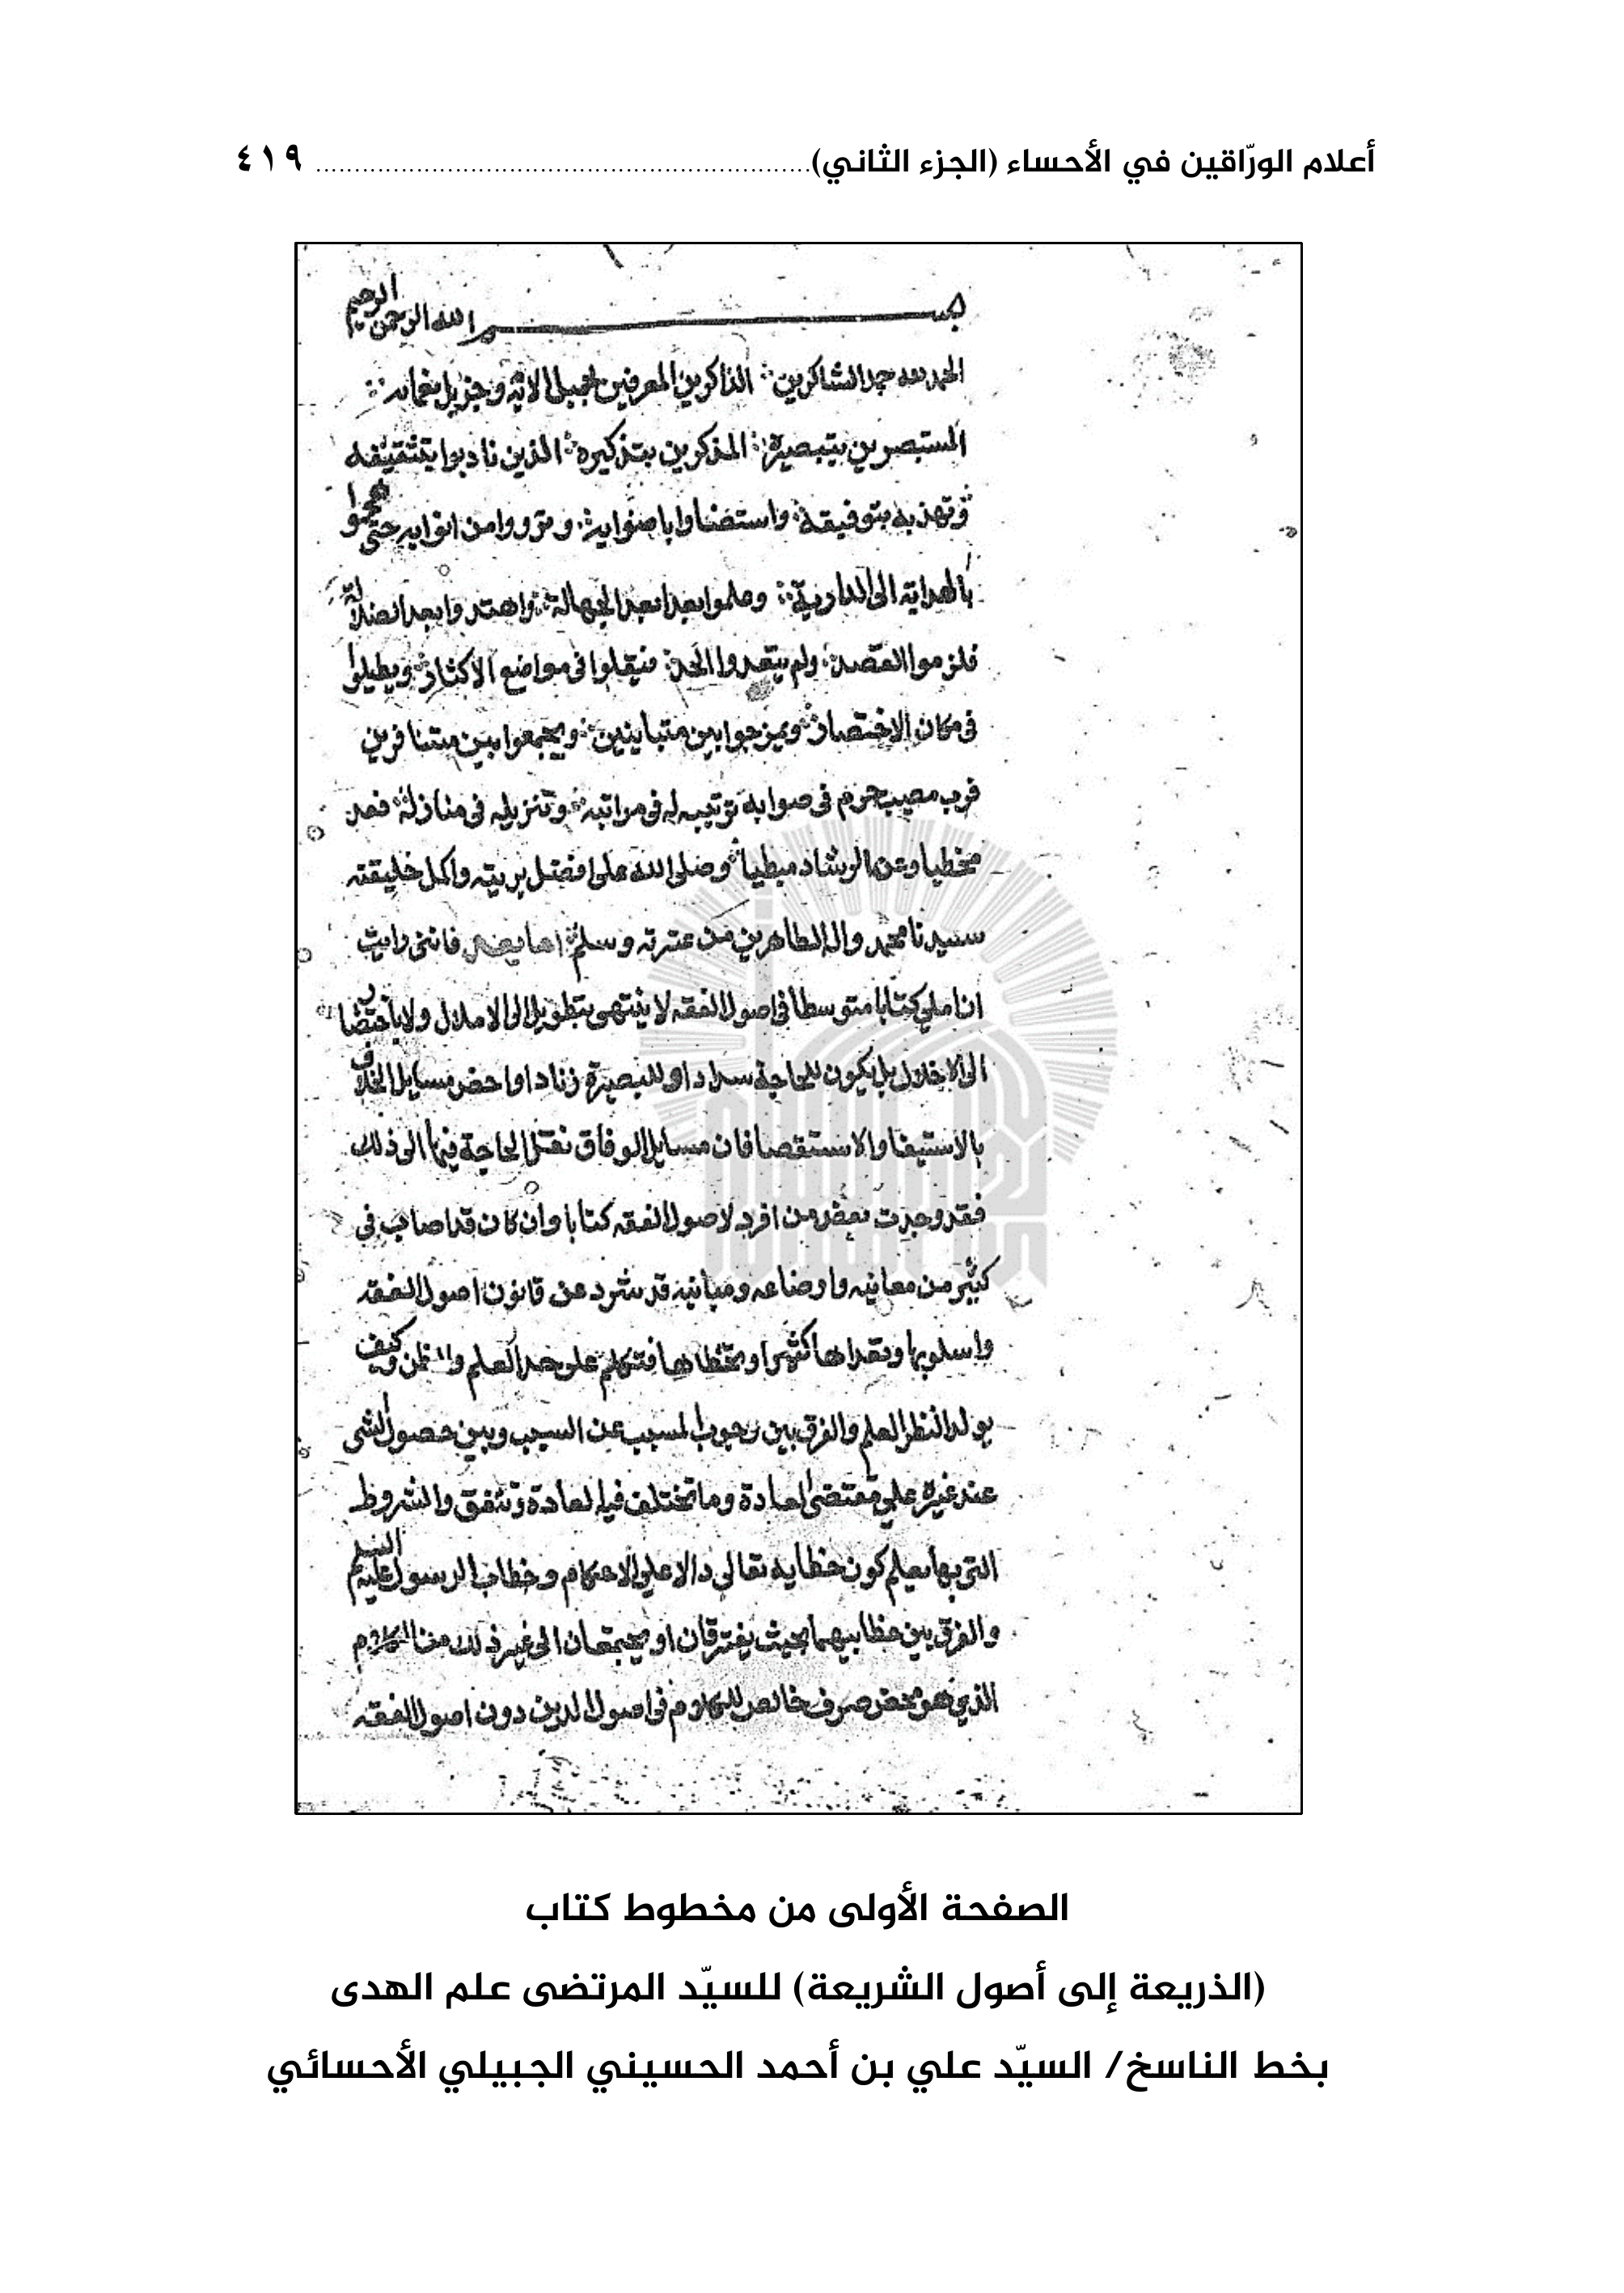 أعلام الورّاقين في الأحساء (الجزء الثاني) ................................................................ ٤١٩
بسم الله الرحمن الرحيم
الحمد لله حمد الشاكرين الذاكرين المعرفين بجميل الائه وجزيل نعمائه
المستبصرين بتبصيره المذكرين بتذكيره الذين تادبوا بتثقيفه
وتهذبه بتوفيقه واستضاوا باضوايه وترووا من انوايه حتى هجموا
بالهداية الى الدارية وعلموا بعد الجهالة واهتدوا بعد الضلالة
فلزموا القصد ولم يتعدوا الحد فيقلوا في مواضع الاكثار ويطيلوا
في مكان الاختصار ويمزجوا بين متباينين ويجمعوا بين متنافرين
فرب مصيب حرم في صوابه ترتيبه له في مراتبه وتنزيله في منازله فعد
مخطيا وعن الرشاد مبطيا وصلى الله على افضل بريته واكمل خليقته
سيدنا محمد واله الطاهرين من عترته وسلم اما بعد فانني رايت
ان املي كتابا متوسطا في اصول الفقه لا ينتهي بتطويل الى الاملال ولا باختصار
الى الاخلال بل يكون للحاجة سدادا وللبصيرة زنادا واخص مسايل الخلاف
بالاستيفا والاستقصا فان مسايل الوفاق تقل الحاجة فيها الى ذلك
فقد وجدت بعض من افرد لاصول الفقه كتابا وان كان قد اصاب في
كثير من معانيه واوضاعه ومبانيه قد شرد عن قانون اصول الفقه
واسلوبها وتعداها كثيرا وتخطاها فتكلم على حد العلم والظن وكيف
يولد النظر العلم والفرق بين وجوب المسبب عن السبب وبين حصول الشي
عند غيره على مقتضى العادة وما تختلف فيه العادة وتتفق والشروط
التي بها يعلم كون خطابه تعالى دالا على الاحكام وخطاب الرسول عليه السلم
والفرق بين خطابيهما بحيث يفترقان او يجتمعان الى غير ذلك من الكلام
الذي هو محض صرف خالص للكلام في اصول الدين دون اصول الفقه
الصفحة الأولى من مخطوط كتاب
(الذريعة إلى أصول الشريعة) للسيّد المرتضى علم الهدى
بخط الناسخ/ السيّد علي بن أحمد الحسيني الجبيلي الأحسائي